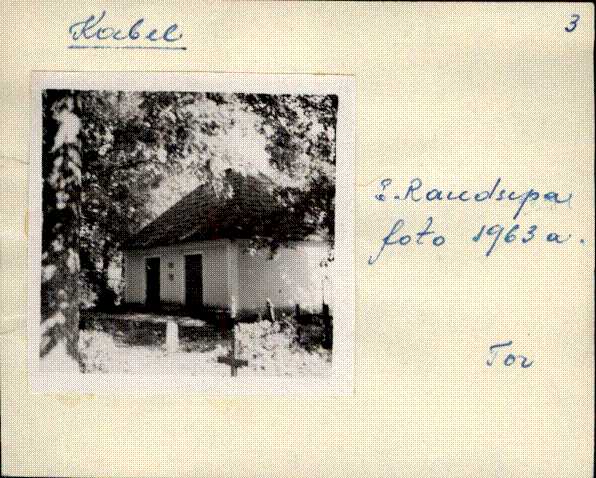 Kabel
3
E. Raudsepa
foto 1963 a.
Tor